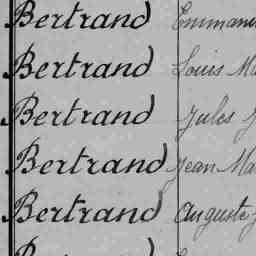 Bertrand Emmanu
Bertrand Louis Ma
Bertrand Jules J
Bertrand Jean Ma
Bertrand Auguste J